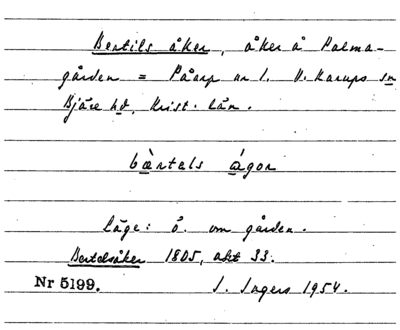 Bertils åker, åker å Palma-
gården = Påarp nr 1. V. Karups sn
Bjäre hd, Krist. län.
bàrtels ágor
läge: ö. om gården.
Bertelsåker 1805, akt 33.
Nr 5199. J. Ingers 1954.